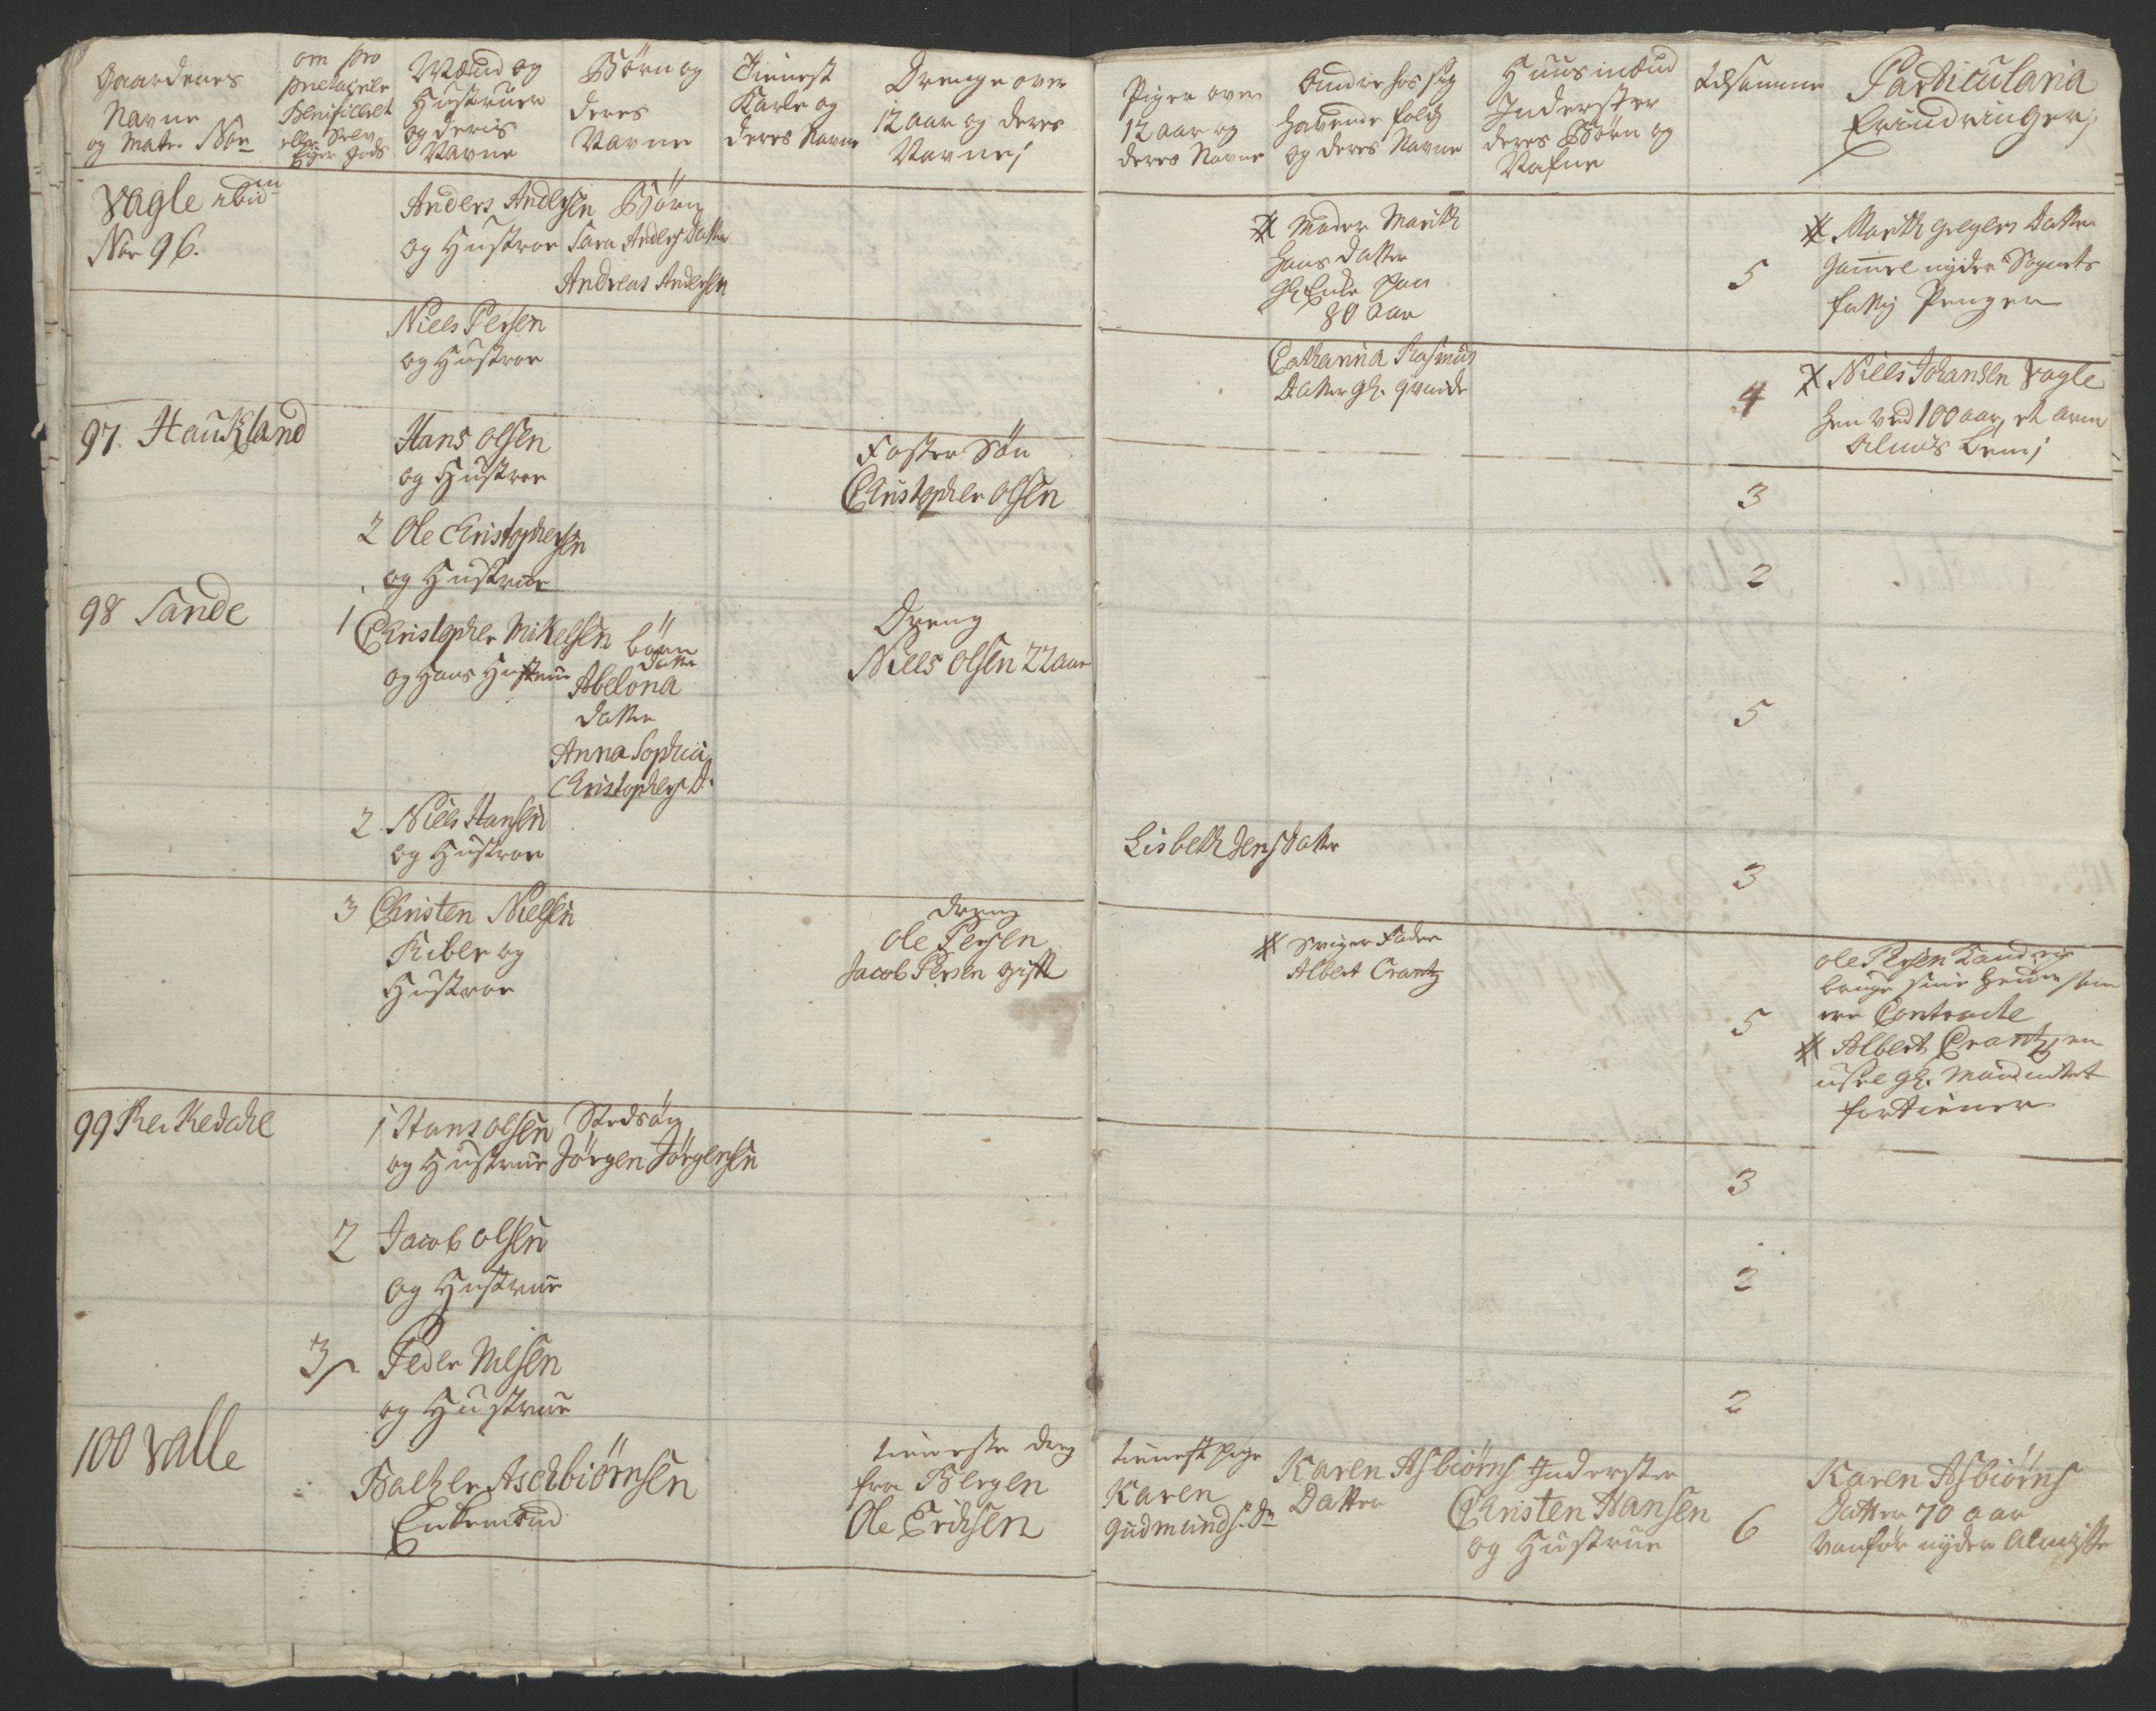 Gaardenes
Navne
og Matr. Nor
om pro
Benificeret
eller Selv
Eyer gods
Mænd og
Hustruer
og deris
Navne
Børn og
deres
Navne
Tienest
Karle og
deres Navne
Drenge over
12 aar og deres
Navne
Piger over
12 aar og
deres Navne
Andre hos sig
havende folk
og deres Navne
Huusmænd
Inderster
deres Børn og
Nafne
Tilsamme
Particularia
Erindringer
Vagle
Nor 96.
Anders Andersen
og Hustroe
Børn
Sara Anders Datter
Andreas Andersen
# Moder Marith
Hans Datter
80 aar
5
# Marith Gregers Datter
Gammel nyder Sognets
fattig Penger
Niels Persen
og Hustroe
Catharina Rasmus
Datter gl. qvinde
4
# Niels Johansen Vagle
hen ved 100 aar, et arm
Almis Lem
97. Haukland
Hans Olsen
og Hustroe
Foster Søn
Christopher Olsen
3
2 Ole Christophersen
og Hustrue
2
98 Sande
1 Christopher Mikelsen
og hans Hustrue
børn
Datter
Abelona
Datter
Anna Sophia
Christophers D.
Dreng
Niels Olsen 22 aar
5
2. Niels Hansen
og Hustroe
Lisbeth Jens Datter
3
3 Christen Nielsen
Kiber og
Hustroe
Dreng
Ole Persen
Jacob Persen gift
# Sviger Fader
Albert Crantz
5
Ole Persen Kand ej
bruge sine Hender som
ere Contracte
# Albert Crantz, en
usel gl. Mand intet
fortiener
99 Reikedahl
1 Hans Olsen
og Hustrue
Stedsøn
Jørgen Jørgensen
3
2 Jacob Olsen
og Hustrue
2
3 Peder Nilsen
og Hustrue
2
100 Valle
Bacher Aschbiørnsen
Enkemand
tieneste dreng
fra Bergen
Ole Erichsen
tienest pige
Karen
Gudmunds Dr
Karen Asbiørns
Datter
Inderster
Christen Hansen
og Hustrue
6
Karen Asbiørns
Datter 70 aar
vanfør nyder Almisse